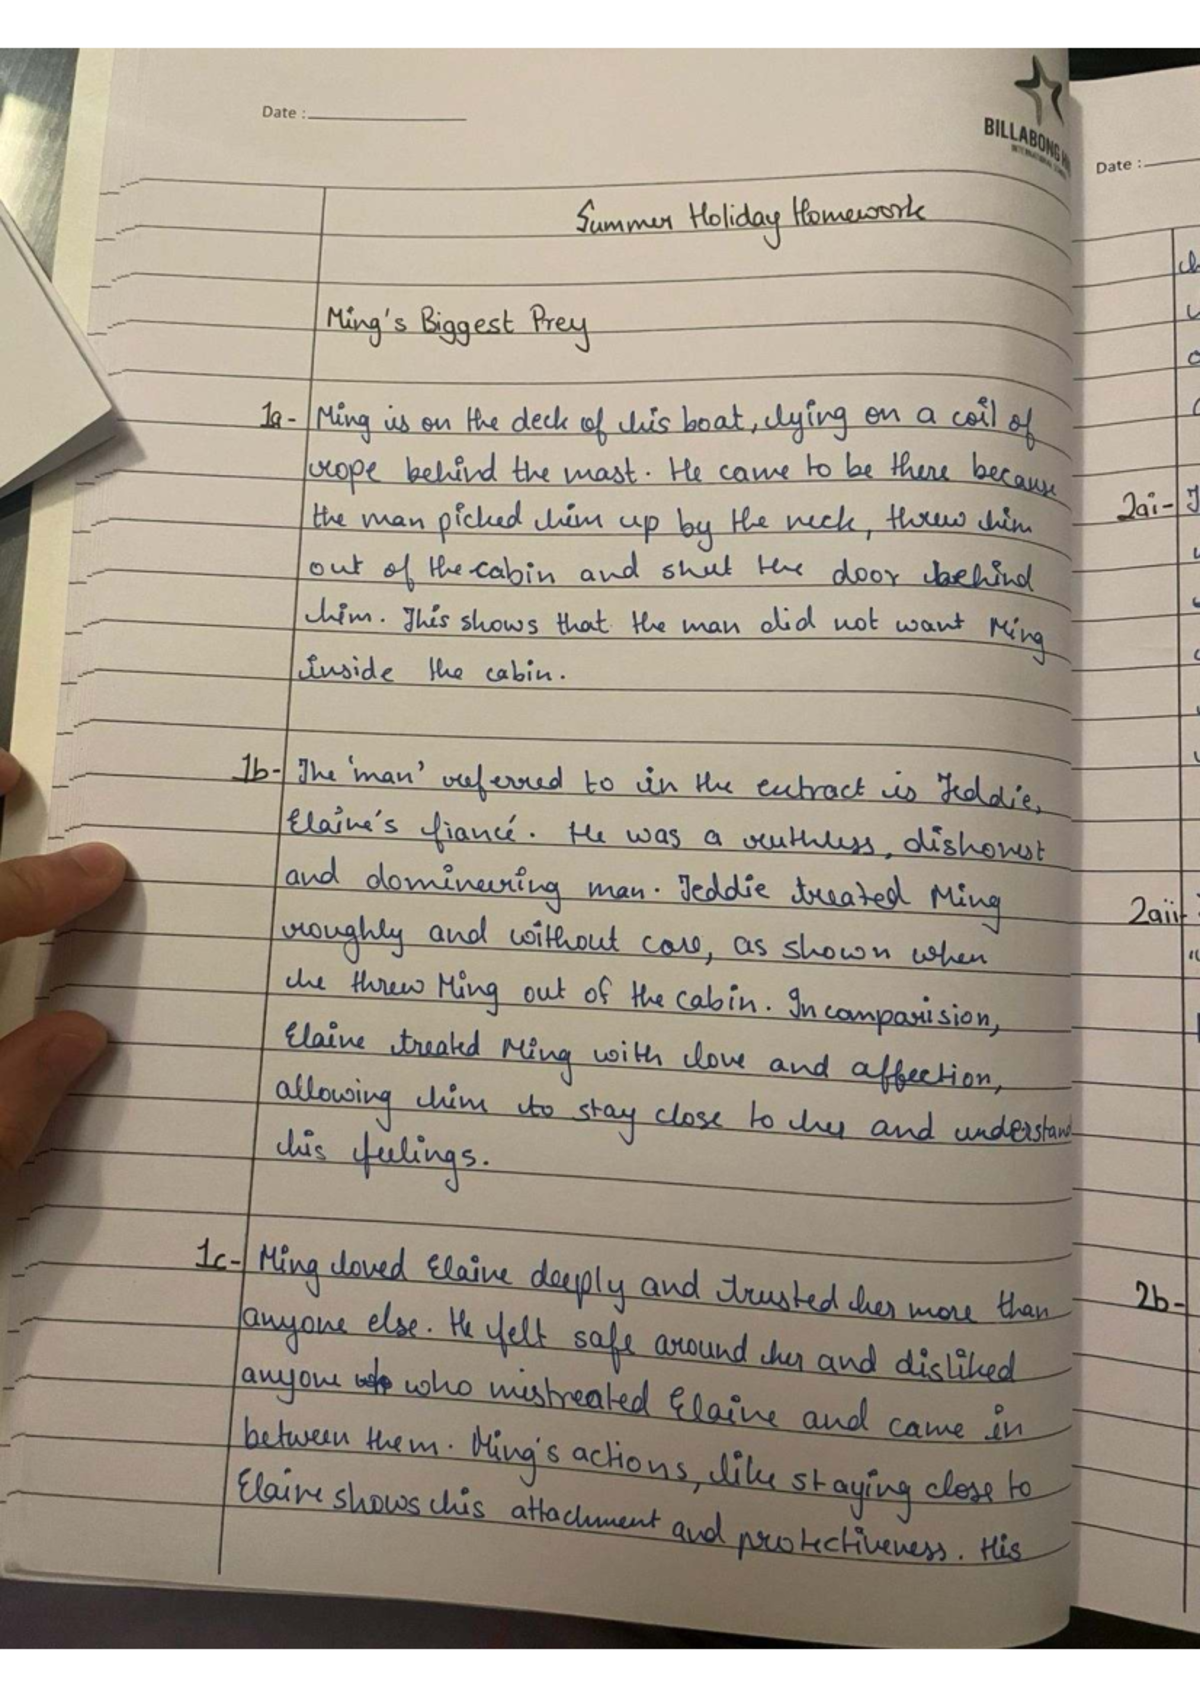 Date :
BILLABONG
INTERNATIONAL
Date :
Summer Holiday Homework
Ming's Biggest Prey
1a- Ming is on the deck of his boat, lying on a coil of
rope behind the mast. He came to be there because
the man picked him up by the neck, threw him
out of the cabin and shut the door behind
him. This shows that the man did not want Ming
inside the cabin.
1b- The 'man' referred to in the extract is Teddie,
Elaine's fiancé. He was a ruthless, dishonest
and domineering man. Teddie treated Ming
roughly and without care, as shown when
he threw Ming out of the cabin. In comparision,
Elaine treated Ming with love and affection,
allowing him to stay close to her and understand
his feelings.
1c- Ming loved Elaine deeply and trusted her more than
anyone else. He felt safe around her and disliked
anyone who mistreated Elaine and came in
between them. Ming's actions, like staying close to
Elaine shows his attachment and protectiveness. His
2ai-
2aii-
2b-